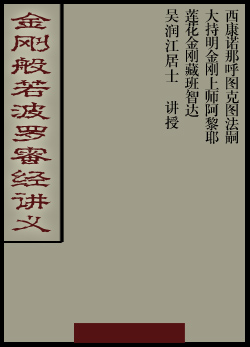 西康诺那呼图克图法嗣
大持明金刚上师阿黎耶
莲花金刚藏班智达
吴润江居士 讲授
金刚般若波罗蜜经讲义